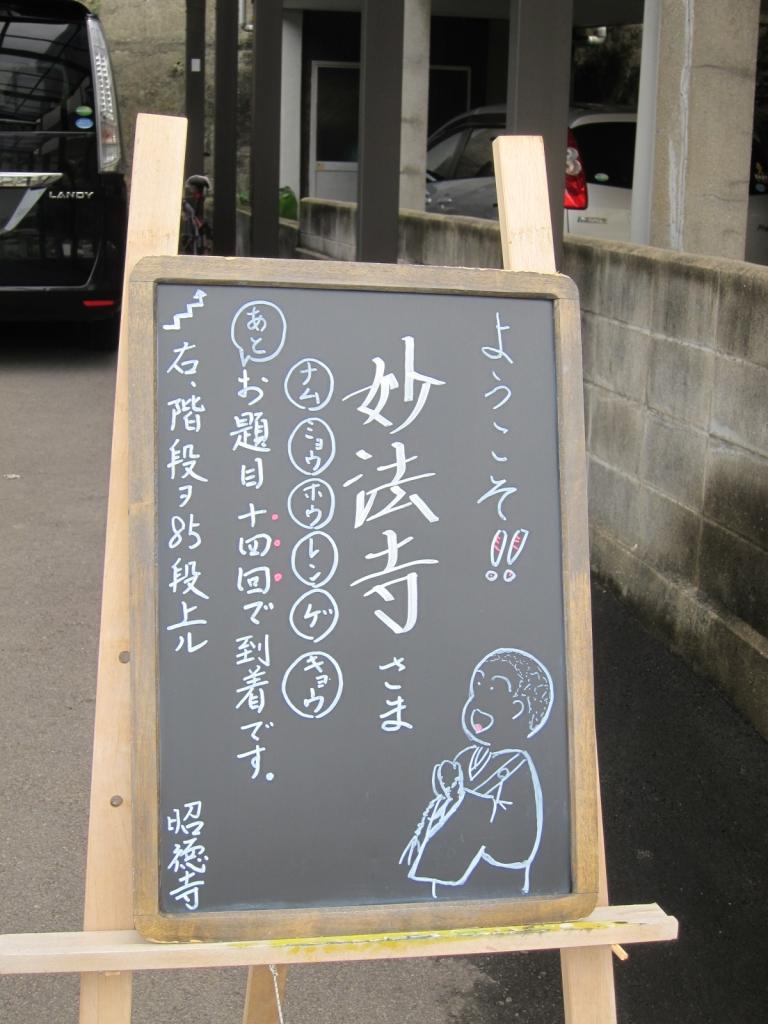 ようこそ!!
妙法寺さま
ナム ミョウ ホウ レン ゲ キョウ
あと お題目十四回で到着です。
右、階段ヲ85段上ル
昭徳寺
LANDY